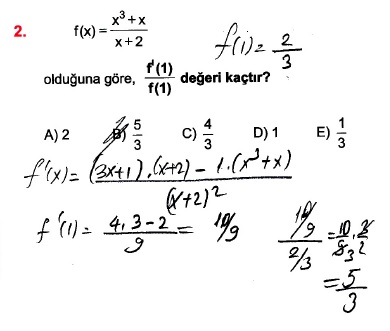 2. f(x) = (x³ + x)/(x + 2)
f(1) = 2/3
olduğuna göre, f'(1)/f(1) değeri kaçtır?
A) 2 B) 5/3 C) 4/3 D) 1 E) 1/3
f'(x) = ((3x+1).(x+2) - 1.(x³+x))/(x+2)²
f'(1) = (4.3-2)/9 = 10/9
(10/9)/(2/3) = 10/9 . 3/2
= 5/3